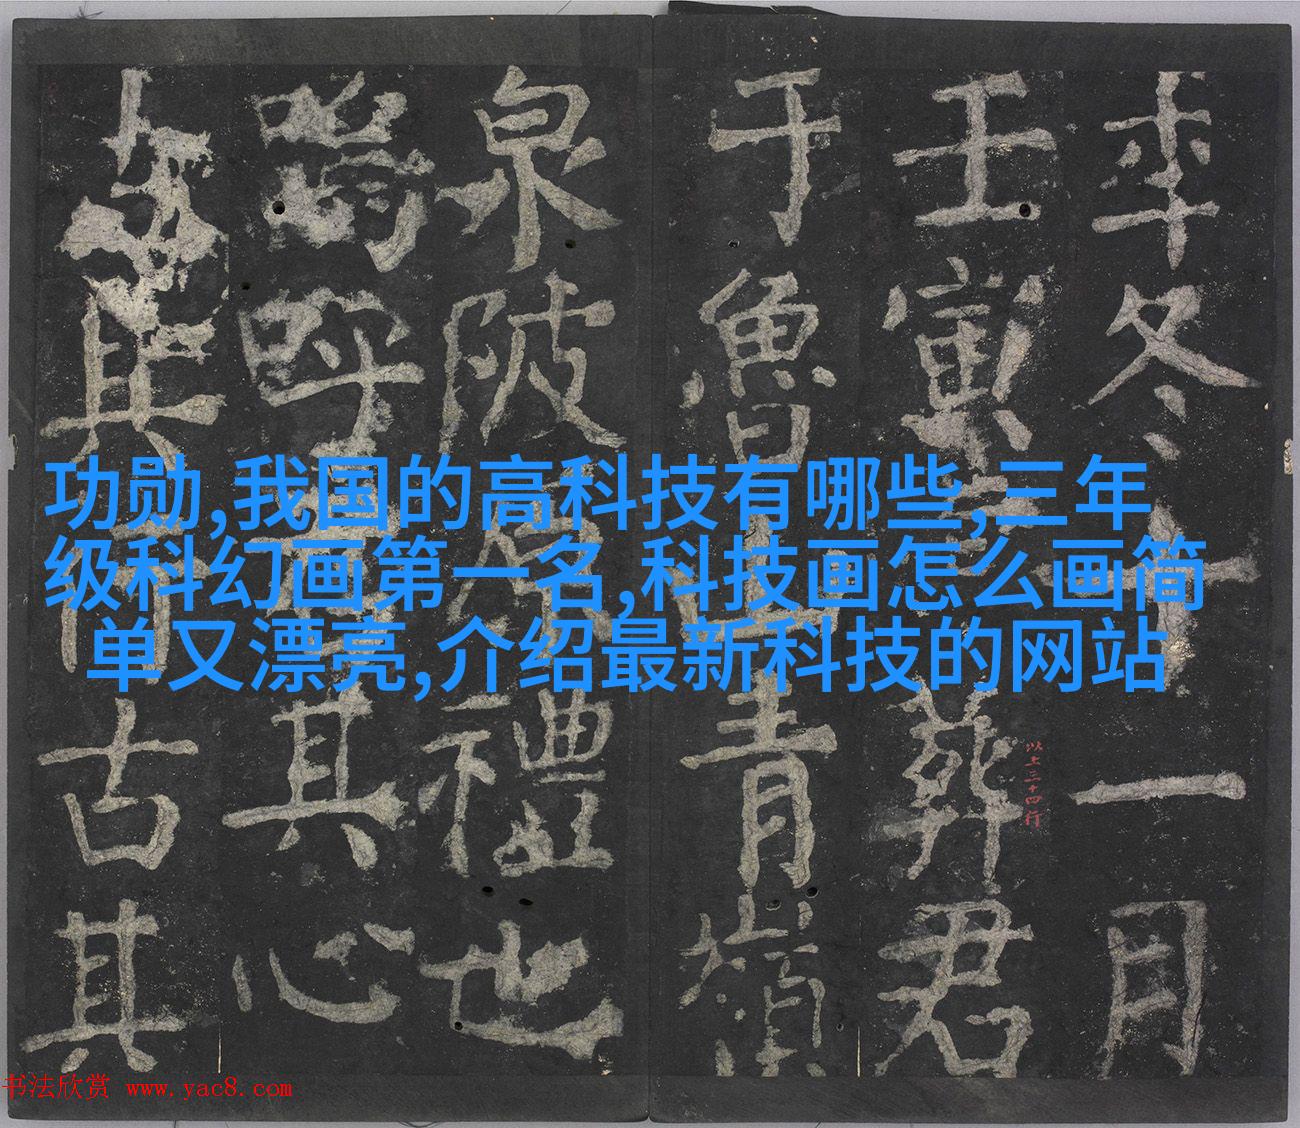 功勋,我国的高科技有哪些,三年
级科幻画第一名,科技画怎么画简
单又漂亮,介绍最新科技的网站
年冬十一月
壬寅葬君
以上三十四行
于魯山青嶺
泉陂原禮也
嗚呼其心
其行古其
书法欣赏 www.yac8.com